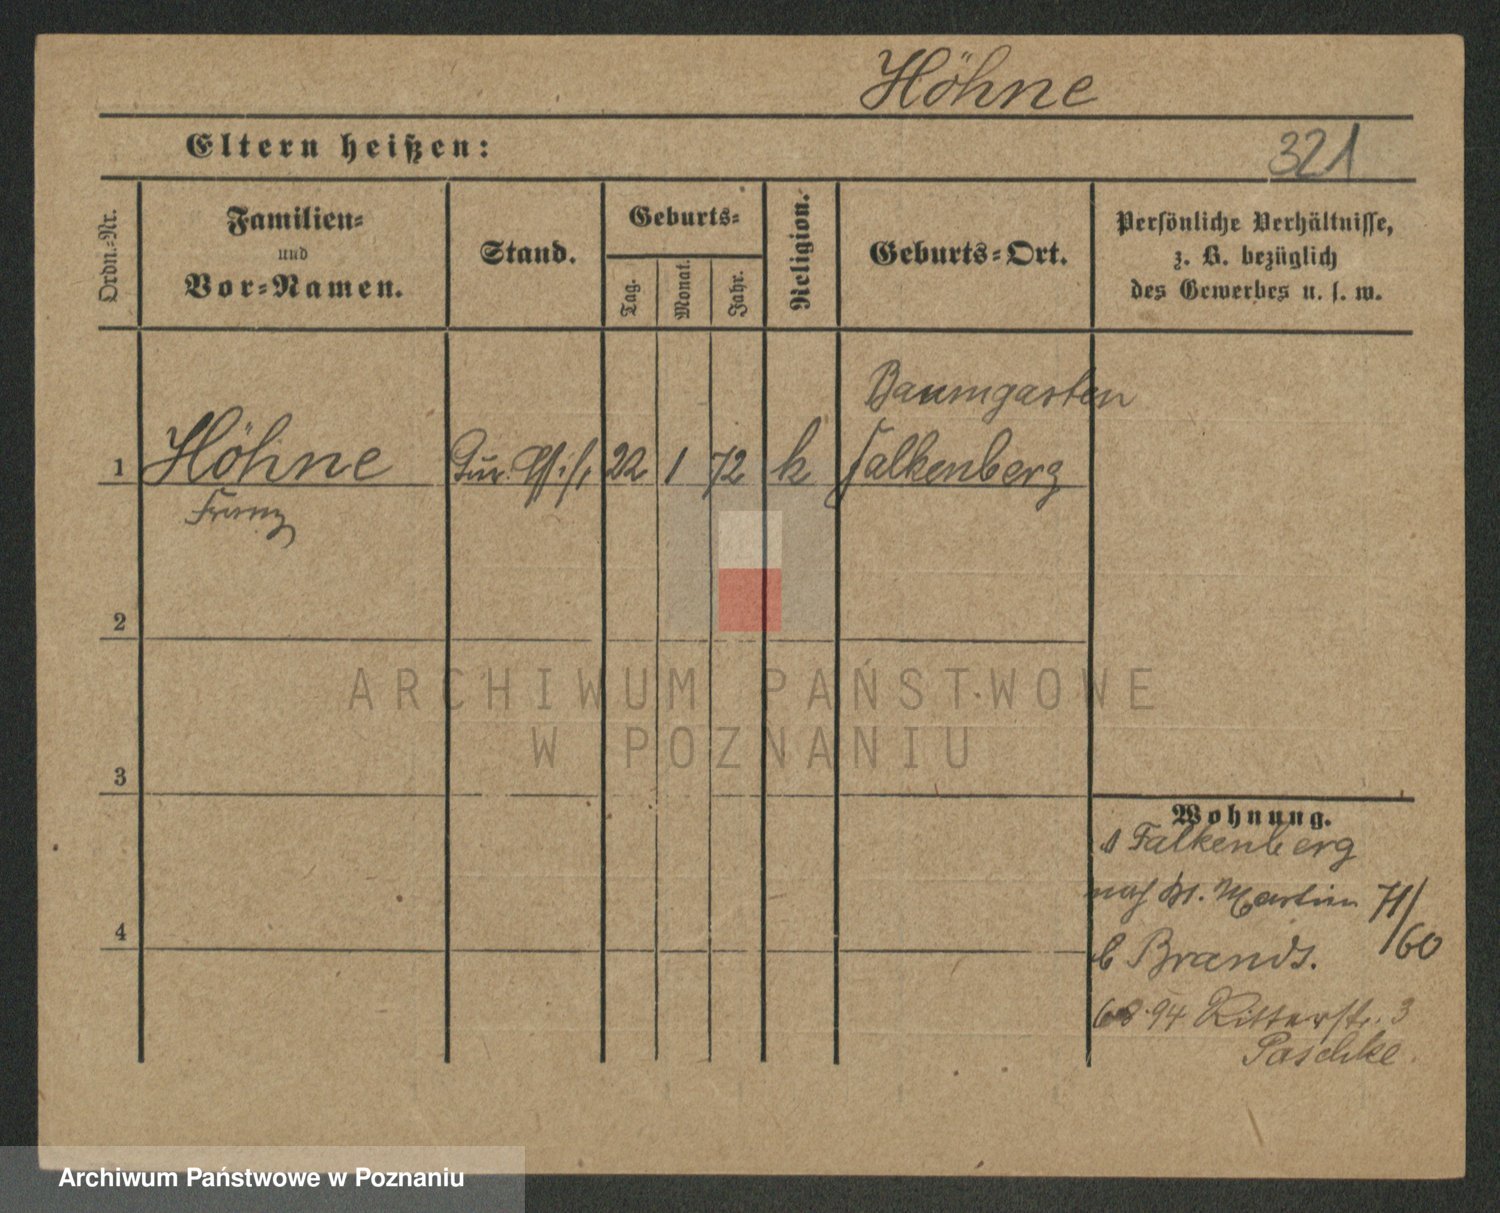 Höhne
Eltern heißen:
321
Ordn.-Nr.
Familien-
und
Vor-Namen.
Stand.
Geburts-
Tag.
Monat.
Jahr.
Religion.
Geburts-Ort.
Persönliche Verhältnisse,
z. B. bezüglich
des Gewerbes u. s. w.
Baumgarten
1 Höhne 22 1 72 k Falkenberg
Franz
2
ARCHIWUM PAŃSTWOWE
W POZNANIU
3
Wohnung.
Falkenberg
nach St. Martin 71/60
b Brands.
94 Ritterstr. 3
Paschke
4
Archiwum Państwowe w Poznaniu